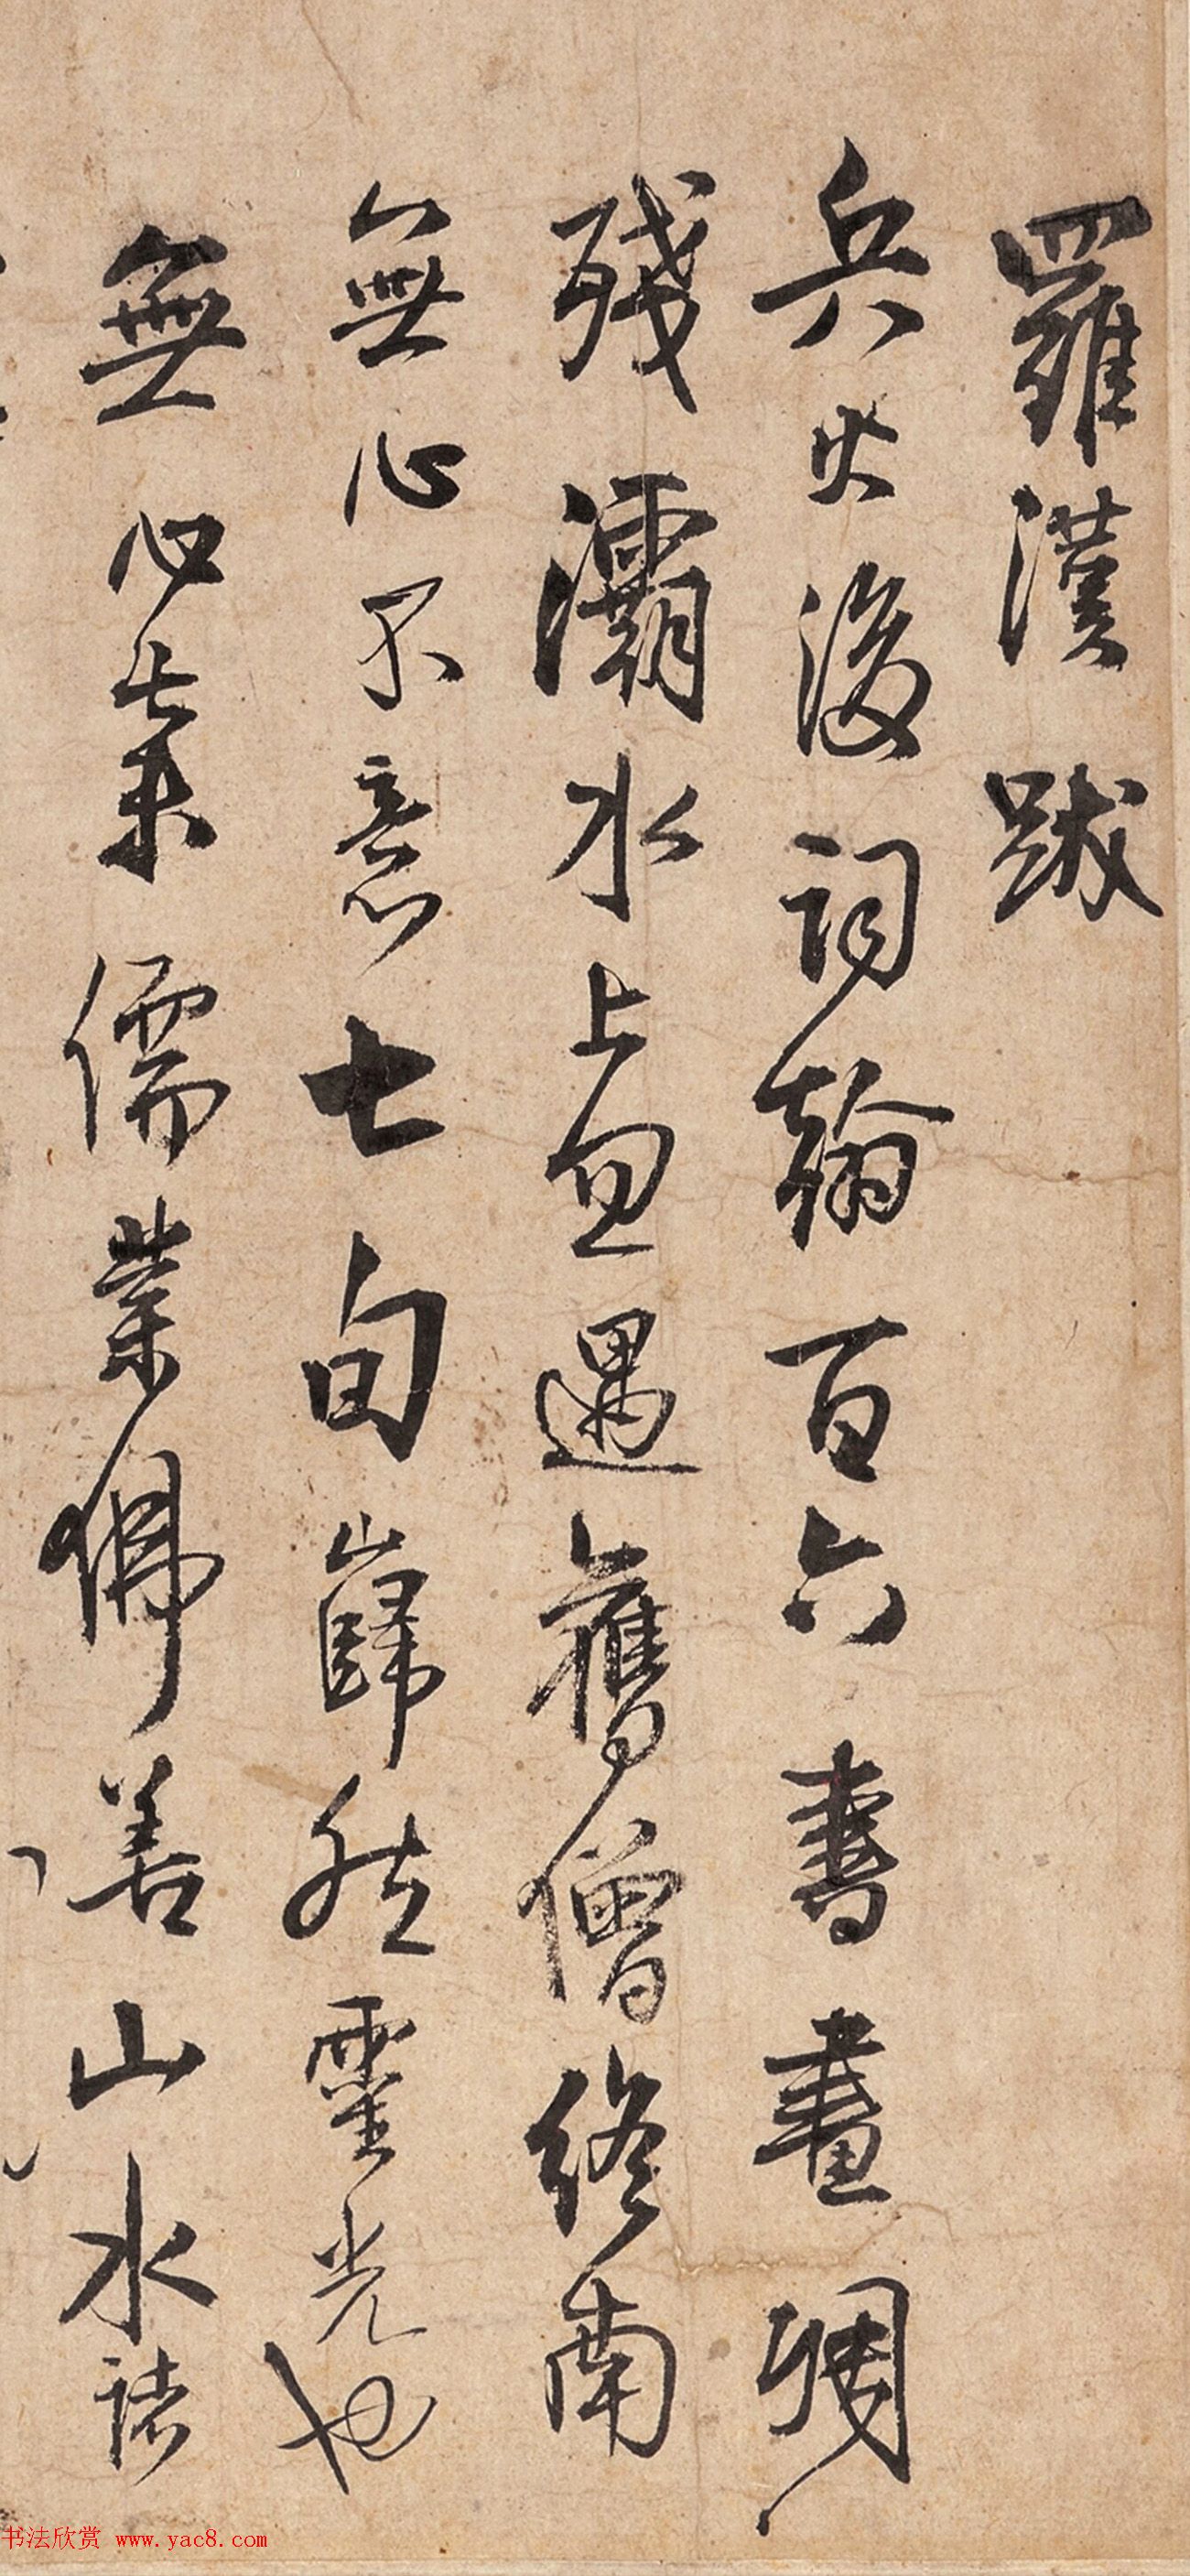 羅漢跋
兵火後詞翰百六書畫凋
殘灞水上忽遇舊僧終南
無心不意七旬巋然靈光也
無心棄儒業佛善山水諸
书法欣赏 www.yac8.com